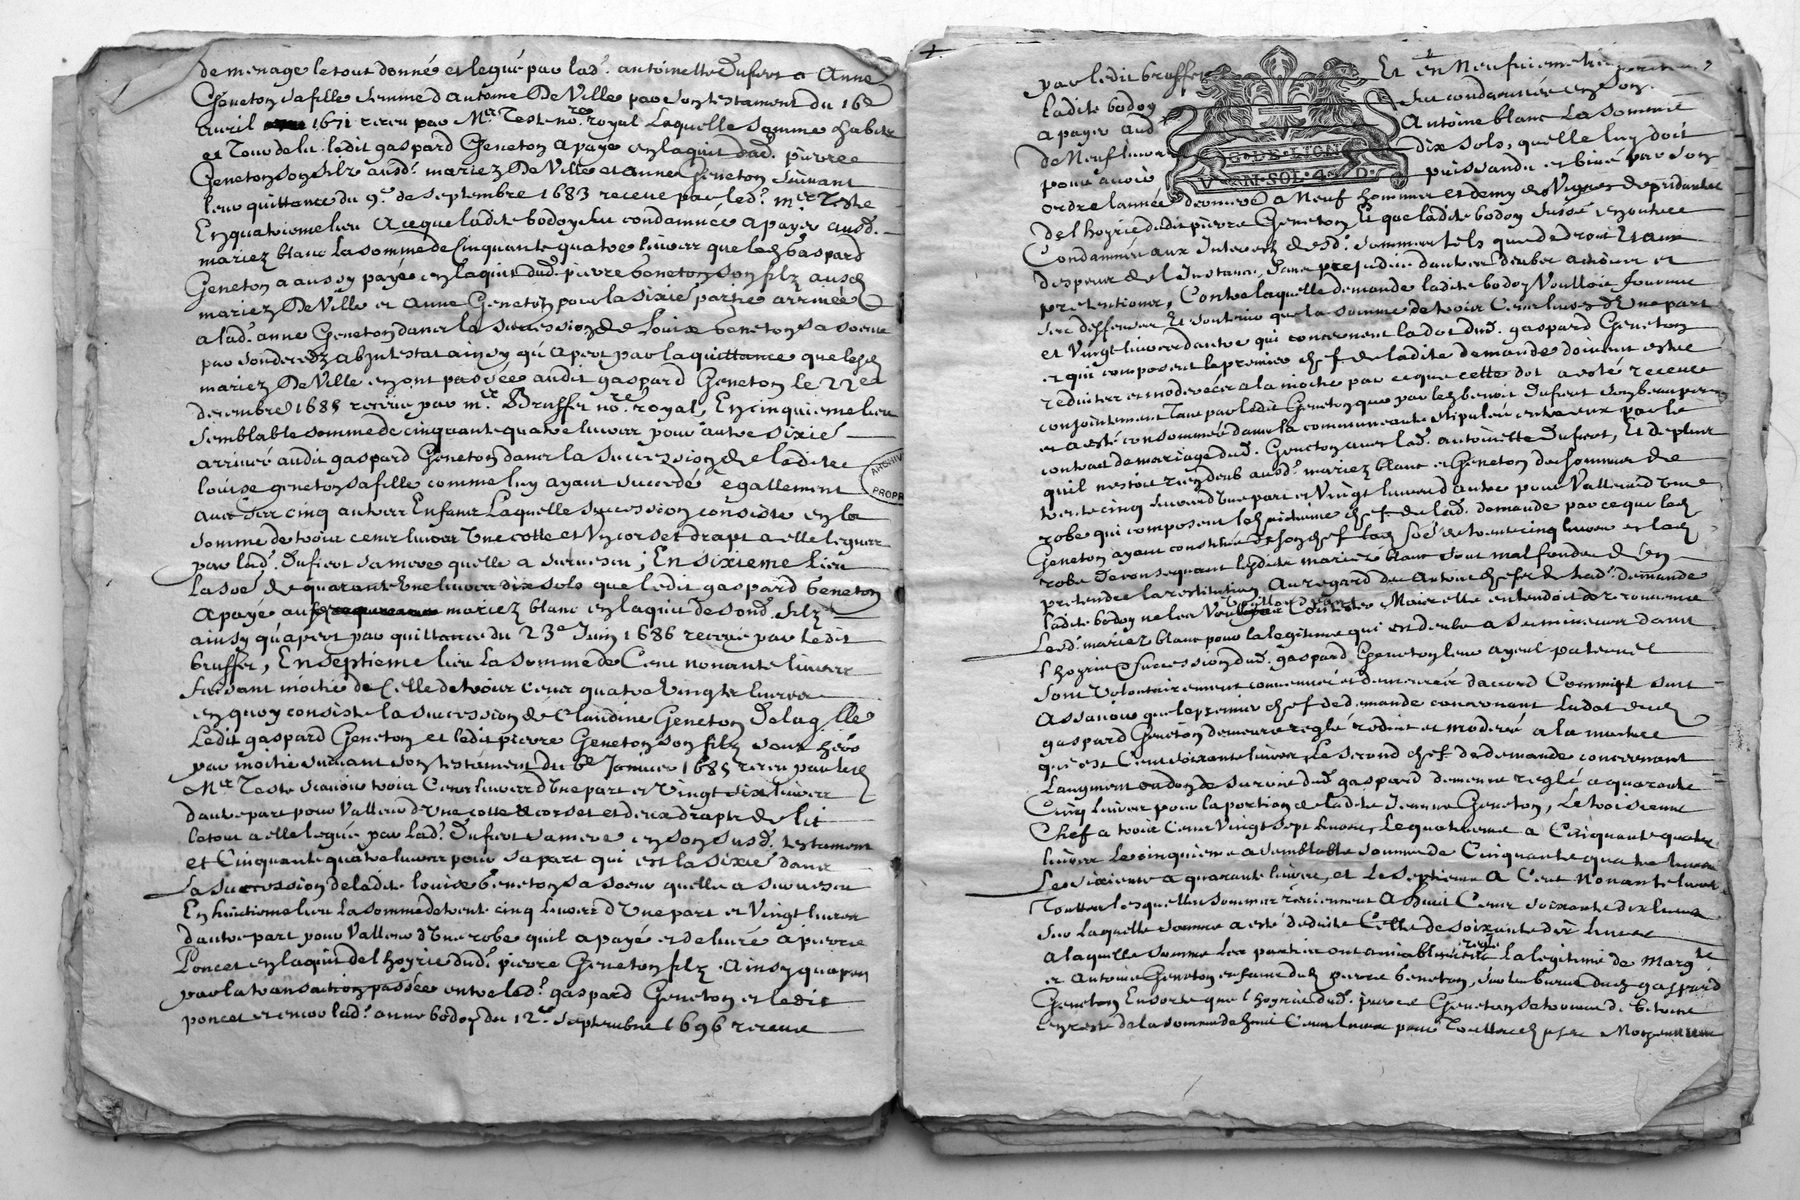 de menage le tout donné et legué par lad. antoinette Dufiert a Anne
Geneton sa fille femme d'antoine De Ville par son testament du 16e
avril 1671 receu par Mre Teste no.re royal Laquelle somme habits
et Tour de lit ledit gaspard Geneton a payé en l'aquit dud. pierre
Geneton son filz ausd. mariez De Ville et anne Geneton suivant
leur quittance du 9e de septembre 1683 receue par led. mre Teste
En quatrieme lieu A ce que ladite bodoy fut condamnée a payer ausd.
mariez blanc La somme de Cinquante quatre livres que led. Gaspard
Geneton a aussy payé en l'aquit dud. pierre Geneton son filz ausd.
mariez De Ville et anne Geneton pour la sixie. partie arrivée
a lad. anne Geneton dans la succession de Louise Geneton sa soeur
par son deces abintestat ainsy qu'apert par la quittance que lesd.
mariez De Ville en ont passée audit gaspard Geneton le 22e
decembre 1685 receue par mre Bruffer no.re royal, En cinquieme lieu
semblable somme de cinquante quatre livres pour autre sixie.
arrivée audit gaspard Geneton dans la succession de ladite
louise geneton sa fille comme luy ayant succedé egallement
avec ses cinq autres Enfans Laquelle succession consiste en la
somme de trois cens livres Une cotte et Un corset drapt a elle leguez
par lad. Dufiert sa mere quelle a survescu ; En sixieme lieu
La soe. de quarante Une livres dix sols que ledit gaspard Geneton
a payé mariez blanc en l'aquit de sond. filz
ainsy qu'apert par quittance du 23e Juin 1686 receue par ledit
bruffer, En septieme lieu La somme de Cent nonante livres
faisant moitié de Celle de trois cens quatre Vingts livres
en quoy consiste la succession de Claudine Geneton De laqlle
Ledit gaspard Geneton et ledit pierre Geneton son filz sont hers
par moitié suivant son testament du 6e Janvier 1685 receu par led.
Mre Teste scavoir trois Cens livres d'Une part et Vingt six livres
d'autre part pour Valleur d'Une cotte & corset et deux drapts de lit
le tout a elle legué par lad. Dufiert sa mere en son susd. testament
et Cinquante quatre livres pour sa part qui est la sixie. dans
La succession de ladite louise Geneton sa soeur quelle a survescu
En huictieme lieu La somme de trente cinq livres d'Une part et Vingt livres
d'autre part pour Valleur d'Une robe qu'il a payé et delivré a pierre
Poncet en l'aquit de l'hoyrie dud. pierre Geneton filz Ainsy qu'apert
par la transaction passée entre led. gaspard Geneton et ledit
poncet et encor lad. anne bodoy du 12e septembre 1696 receue
ARCHIV
PROPR
par ledit bruffer Et En Neufviemelieu
ladite bodoy fut condamnée en son
a payer aud. Antoine blanc La somme
de Neuf livres dix sols, quelle luy doit
pour avoir puissandu et biné par son
G. DE. LION
MAN. SOL. 4 D.
ordre l'année derniere a Neuf hommes et demy de Vignes dependantes
de l'hoyrie dudit pierre Geneton Et que ladite bodoy fusse en outre
Condamnée aux Interests desd. sommes tels que de droit Et aux
despens de l'Instance, sans prejudice d'autres deubs actions et
pretentions, Contre laquelle demande ladite bodoy Vouloit fournir
ses deffenses Et soutenir que la somme de trois Cens livres d'Une part
et Vingt livres d'autre qui concernent la dot dud. gaspard Geneton
et qui composent le premier chef de ladite demande doivent estre
reduittes et moderées a la moitié par ce que cette dot a esté receue
conjointement Tant par ledit Geneton que par led. benoit Dufiert son beaupere
et a esté consommée dans la communauté stipulée entre eux par le
contract de mariage dud. Geneton avec lad. antoinette Dufiert, Et de plus
qu'il n'estoit rien deub ausd. mariez blanc et Geneton des sommes de
trente cinq livres d'Une part et Vingt livres d'autre pour Valleur d'Une
robe qui composent le huictieme chef de lad. demande par ce que led.
Geneton ayant constitué de son chef lad. soe. de trente cinq livres et lad.
robe De consequent lesdits mariez blanc sont mal fondez d'en
pretendre la restitution Au regard des Autres chefs de lad. demande
ladite bodoy ne les Contester Mais elle entendoit de retenir
Lesd. mariez blanc pour la legitime qui est deube a ses mineurs dans
l'hoyrie & succession dud. gaspard Geneton leur ayeul paternel
sont volontairement convenues et demeurées d'accord Comme s'ensuit
Assavoir que le premier chef de demande concernant la dot dud.
gaspard Geneton demeure reglé reduit et moderé a la moitié
qui est Cent soixante livres, Le second chef de demande concernant
L'augment ou don de survie dud. gaspard demeure reglé a quarante
Cinq livres pour la portion de ladite Jeanne Geneton, Le troisieme
Chef a trois Cens Vingt sept livres, Le quatrieme a Cinquante quatre
livres Le cinquieme a semblable somme de Cinquante quatre livres
Le sixieme a quarante livres, et Le septieme a Cent Nonante livres
Touttes lesquelles sommes reviennent A huit Cens soixante dix livres
sur Laquelle somme a esté deduite Celle de soixante dix livres
a laquelle somme Les parties ont amiablement reglé La legitime de Margte
et Antoine Geneton enfans dud. pierre Geneton, sur les biens dud. gaspard
Geneton En sorte que l'hoyrie dud. pierre Geneton se trouve debitrice
en reste de la somme de huit Cens livres pour Touttes choses Moyennant